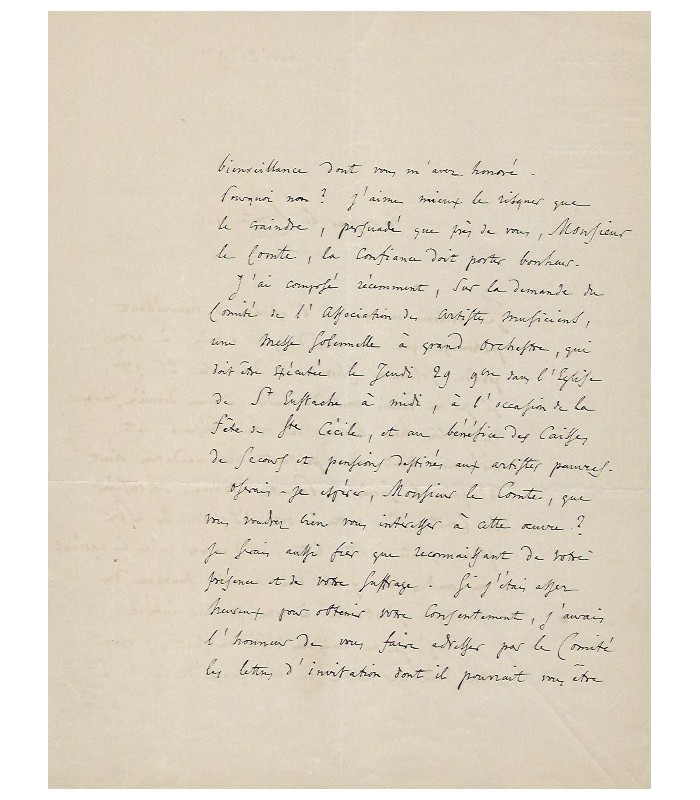 bienveillance dont vous m'avez honoré.
Pourquoi non? J'aime mieux le risquer que
le craindre, persuadé que près de vous, Monsieur
le Comte, la confiance doit porter bonheur.
J'ai composé récemment, sur la demande du
Comité de l'Association des Artistes Musiciens,
une Messe Solennelle à grand Orchestre, qui
doit être exécutée le Jeudi 29 9bre dans l'Eglise
de St Eustache à midi, à l'occasion de la
Fête de Ste Cécile, et au bénéfice des Caisses
de Secours et pensions destinés aux artistes pauvres.
Oserais-je espérer, Monsieur le Comte, que
vous voudrez bien vous intéresser à cette œuvre?
Je serais aussi fier que reconnaissant de votre
présence et de votre suffrage. Si j'étais assez
heureux pour obtenir votre consentement, j'aurais
l'honneur de vous faire adresser par le Comité
les lettres d'invitation dont il pourrait vous être